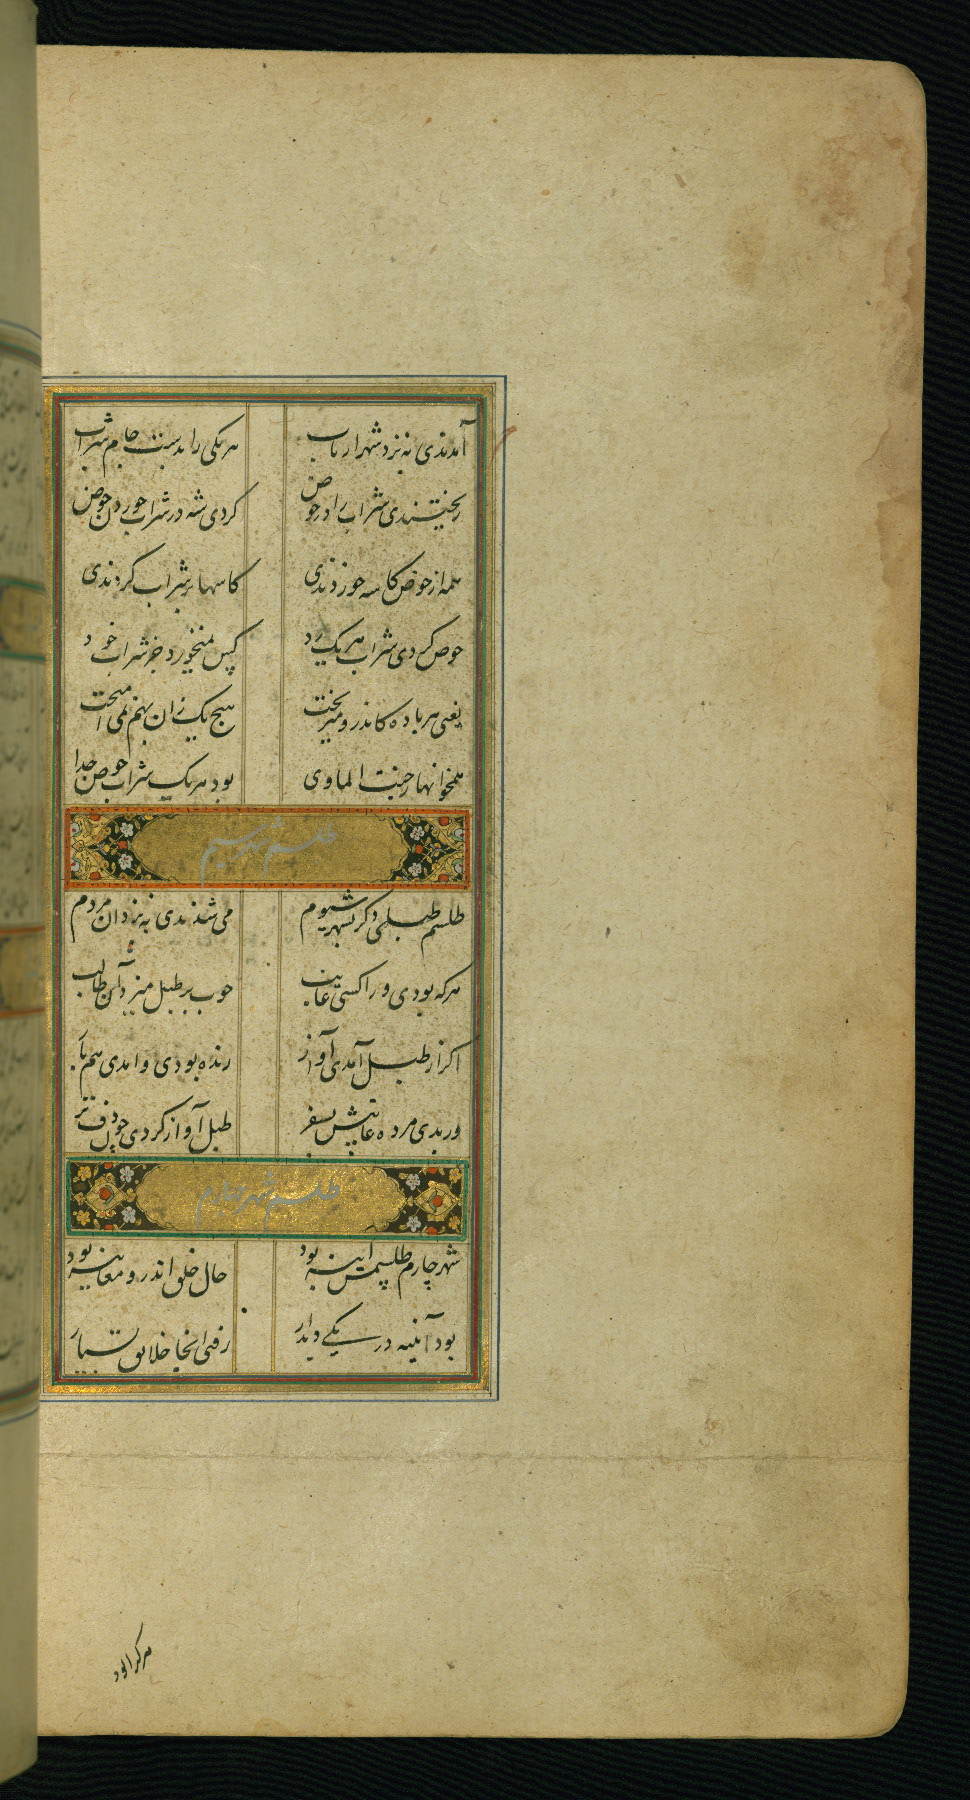 آمدندی به نزد شهر ارباب هر یکی را بدست جام شراب
ریختندی شراب را در حوض کردی شه در شراب خوردن خوض
همه از حوض کاسه خوردندی کاسها پر شراب کردندی
حوض کردی شراب هر یک رد کس نمیخورد جز شراب خود
یعنی هر باده کاندرو میریخت هیچ یک زان بهم نمی آمیخت
همخوانها ز جنت الماوی بود هر یک شراب حوض جدا
طلسم شهر سیم
طلسم طبلی دگر بشهر سیوم می شدندی به نزد آن مردم
هرکه بودی ورا کسی غایب چوب بر طبل میزد آن طالب
اگر از طبل آمدی آواز زنده بودی و آمدی هم باز
ور بدی مرده غایبش بسفر طبل آواز کردی چون دف تر
طلسم شهر چهارم
شهر چارم طلسمش آینه بود حال خلق اندرو معاینه بود
بود آیینه در یکی دیدار رفتی آنجا خلایق بسیار
هرکرا بود